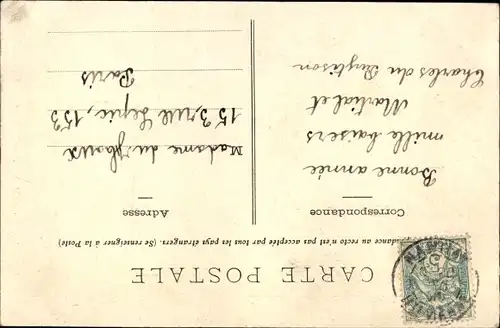 CARTE POSTALE
ndance au recto n'est pas acceptée par tous les pays étrangers. (Se renseigner à la Poste)
Correspondance
Bonne année
mille baisers
Martial et
Charles du
Adresse
Madame du
153, rue Lepic, 153
Paris